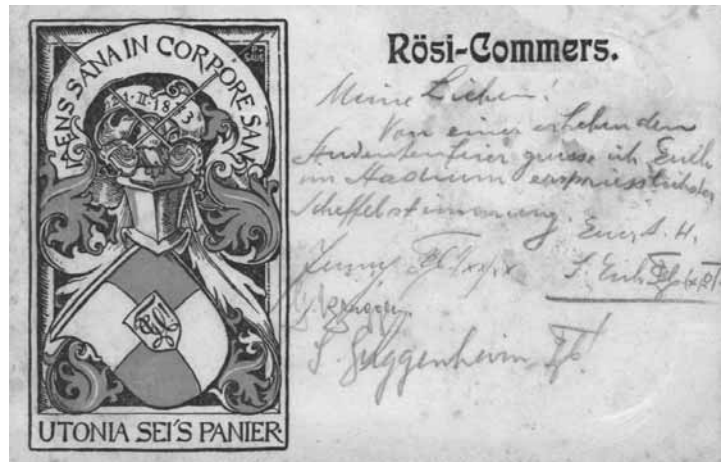 MENS SANA IN CORPORE SAN
II·1873
UTONIA SEI'S PANIER
Rösi-Commers.
Meine Lieben!
Von einer erhebenden
Studentenfeier grüsse ich Euch
im Stadium erspriesslichster
Scheffelstimmung. Euer
S. Guggenheim